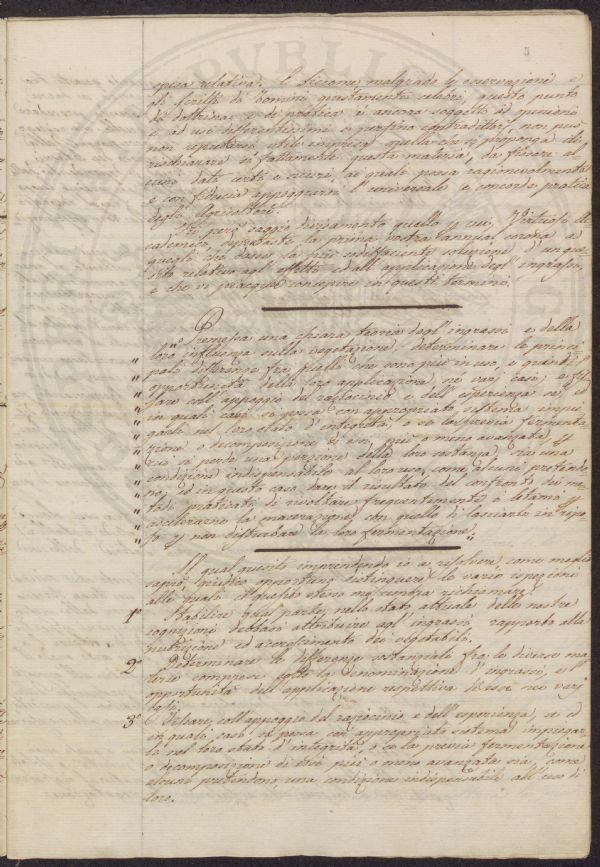 spesa relativa. E siccome malgrado le osservazioni e
gli scritti di uomini giustamente celebri, questo punto
di dottrina e di pratica è ancora soggetto ad opinioni
e ad usi differentissimi e perfino contradittorj, non può
non reputarsi utile impresa quella che si proponga di
rischiarare infattamente questa materia, da fissare al
cuni dati certi e sicuri, ai quali possa ragionevolmente
e con fiducia appoggiarsi l'universale e concorde pratica
degli Agricoltori.
Fù però saggio divisamento quello p cui, Virtuosi Ac
cademici, la prima vostra annual corona a
quegli che dasse la più soddisfacente soluzione d'un que
sito relativo agl' effetti ed all' applicazione degl' ingrassi,
e che vi piacque concepire in questi termini.
" Premessa una chiara teoria degl' ingrassi e della
loro influenza sulla vegetazione: determinare le princi
" pali differenze fra quelli che sono più in uso, e quindi l'
" opportunità della loro applicazione ne' varj casi e fis
" sare coll' appoggio del raziocinio e dell' esperienza se ed
" in quali casi si possa con appropriato sistema impie
" garli nel loro stato d'integrità, o se la previa fermenta
" zione o decomposizione di essi, più o meno avanzata p
" cui si perde una porzione della loro sostanza, sia una
" condizione indispensabile al loro uso, come alcuni pretendo
" no; ed in questo caso dare il risultato del confronto dei me
" todi praticati di rivoltare frequentemente i letami p
" accelerarne la macerazione, con quello di lasciarli in ripo
" so p non disturbare la loro fermentazione "
Il qual quesito imprendendo io a risolvere come meglio
saprò, credo opportuno distinguere le varie ispezioni
alle quali il quesito stesso mi sembra richiamare.
1° Stabilire qual parte, nello stato attuale delle nostre
cognizioni debbasi attribuire agl' ingrassi rapporto alla
nutrizione ed accrescimento dei vegetabili.
2° Determinare le differenze sostanziali fra le diverse ma
terie comprese sotto la denominazione d'ingrassi, e l'
opportunità dell' applicazione respettiva d'esse nei varj
casi.
3° Fissare, coll' appoggio del raziocinio e dell' esperienza, se ed
in quali casi si possa con appropriato sistema impiegar
li nel loro stato d'integrità, o se la previa fermentazione
o decomposizione di essi più o meno avanzata sia, come
alcuni pretendono, una condizione indispensabile all' uso di
loro.